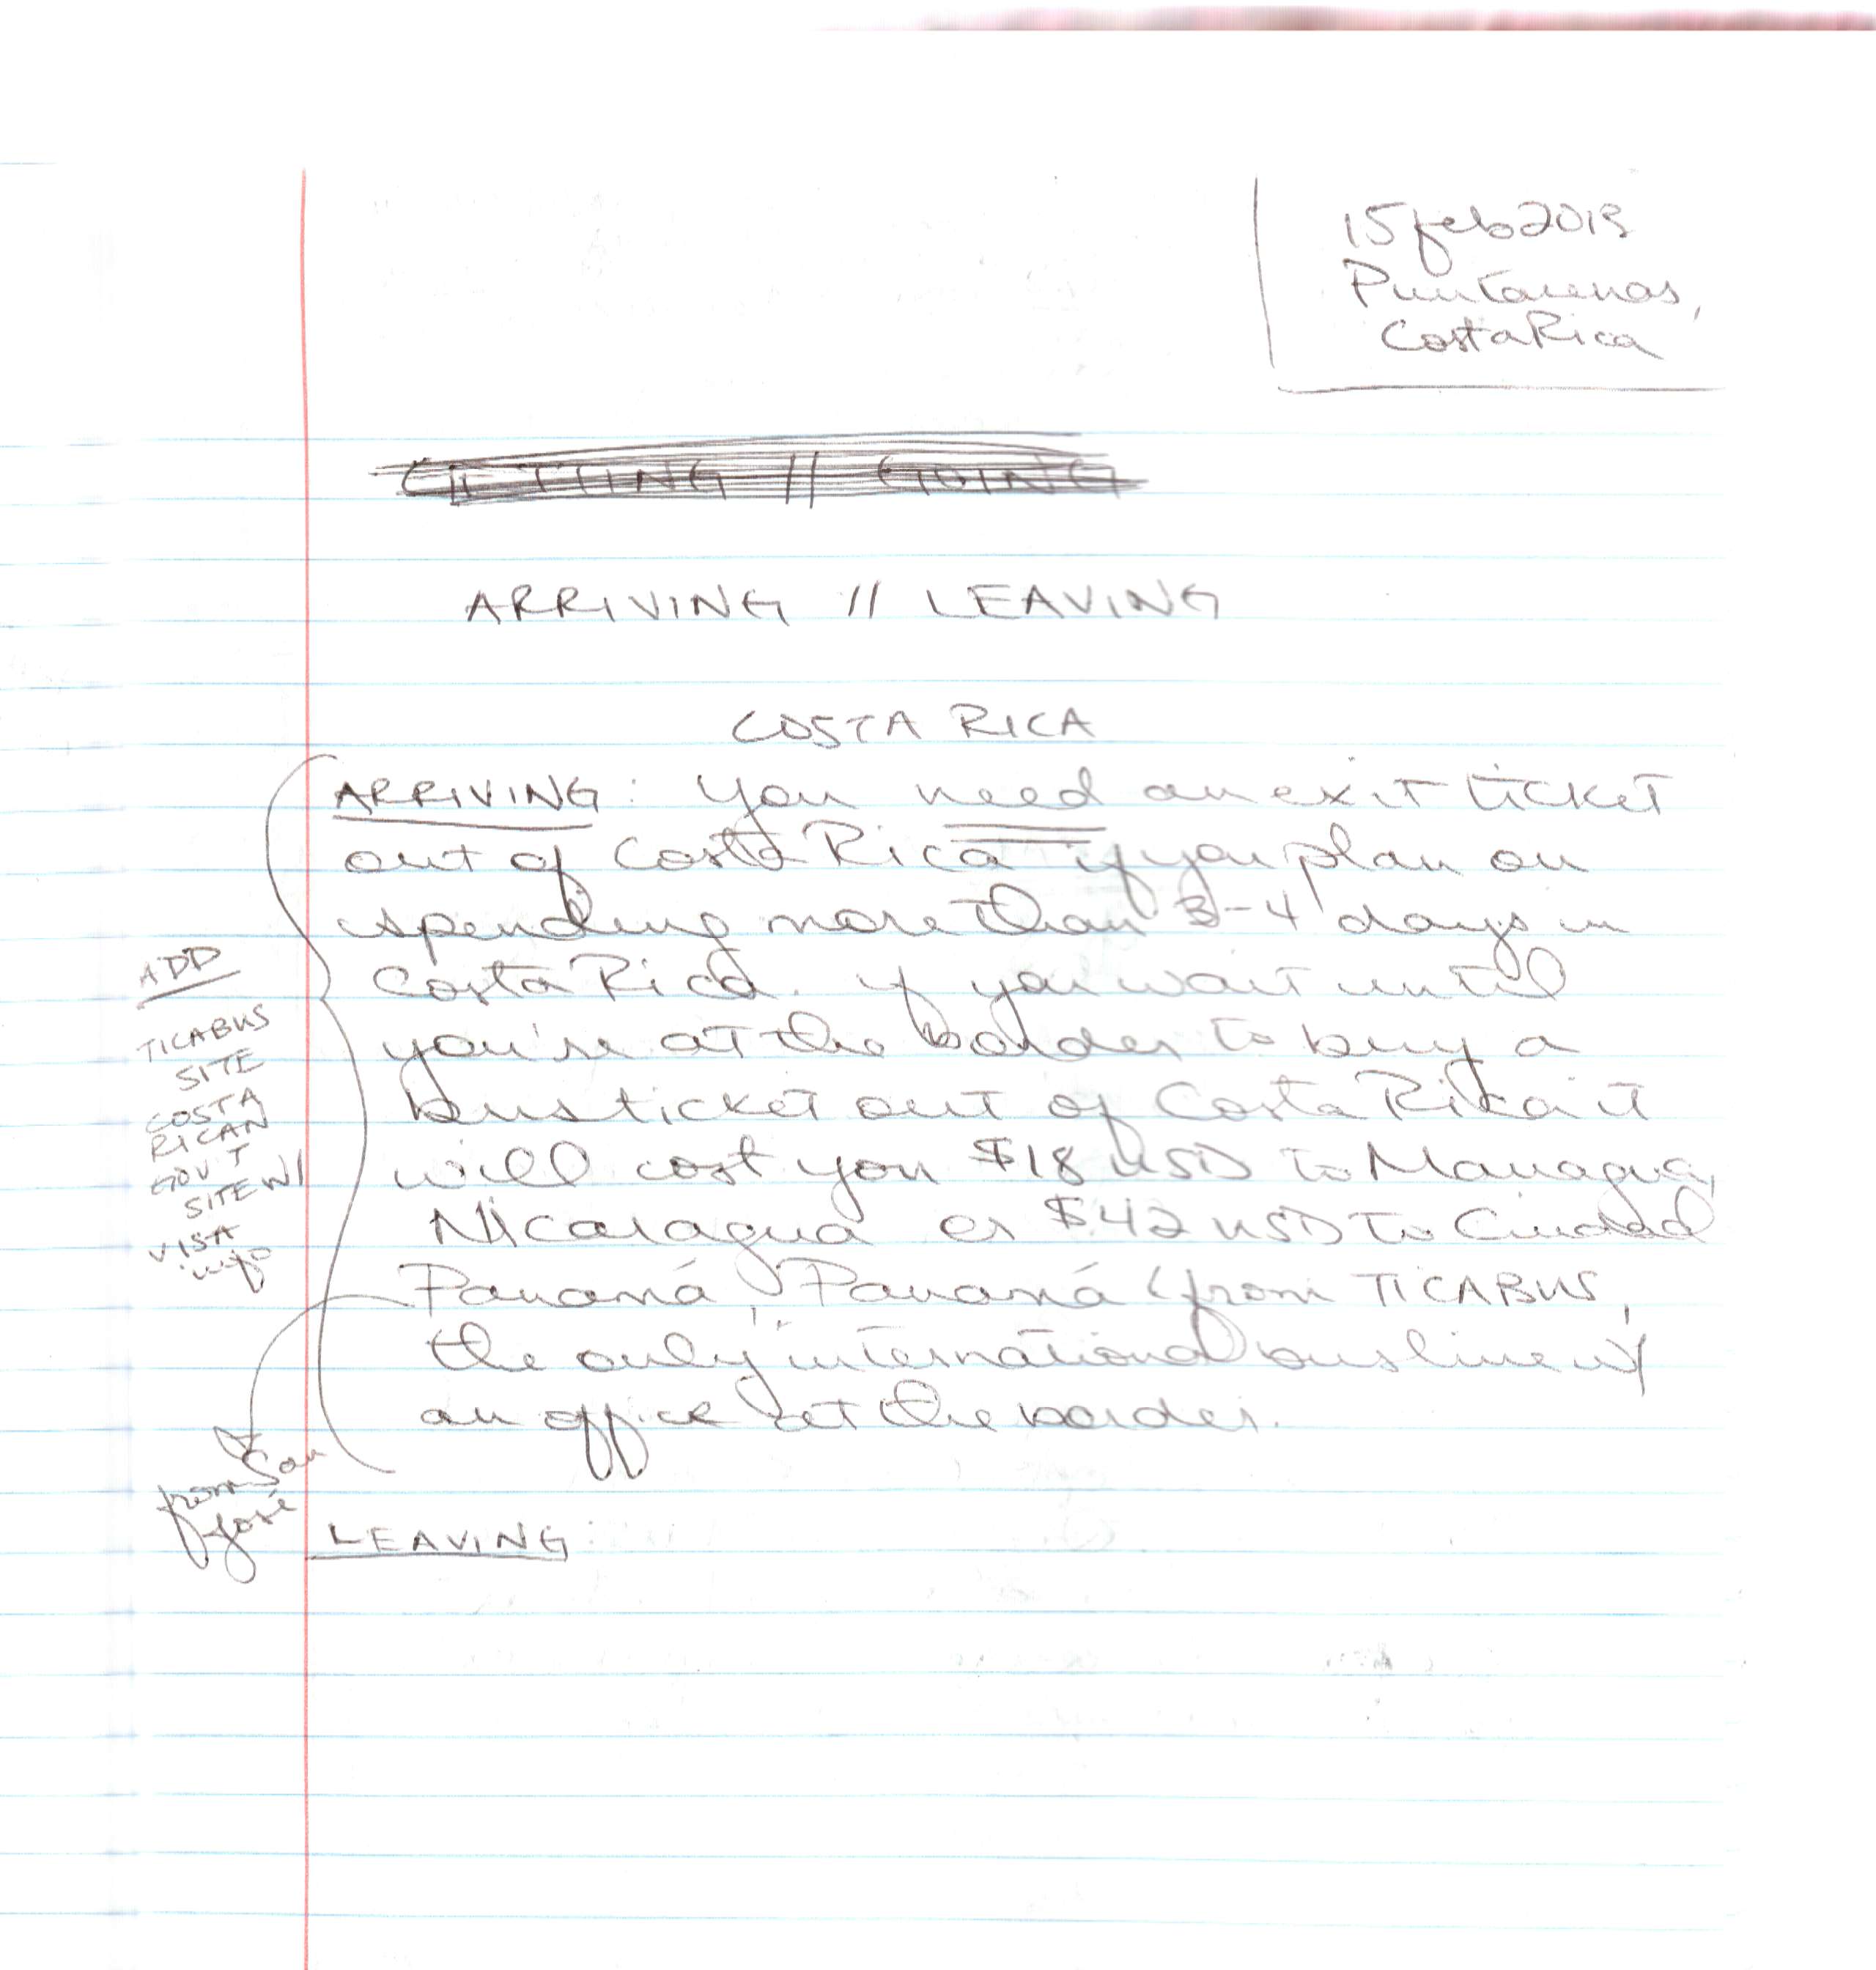 15feb2013
Puntarenas,
Costa Rica
GETTING // GOING
ARRIVING // LEAVING
COSTA RICA
ARRIVING: you need an exit ticket
out of Costa Rica if you plan on
spending more than 3-4 days in
Costa Rica. if you wait until
you're at the border to buy a
bus ticket out of Costa Rica it
will cost you $18 USD to Managua,
Nicaragua or $42 USD to Ciudad
Panamá, Panamá (from TICABUS,
the only international busline w/
an office at the border.
ADD
TICABUS
SITE
COSTA
RICAN
GOV'T
SITE W/
VISA
info
from San
José
LEAVING: